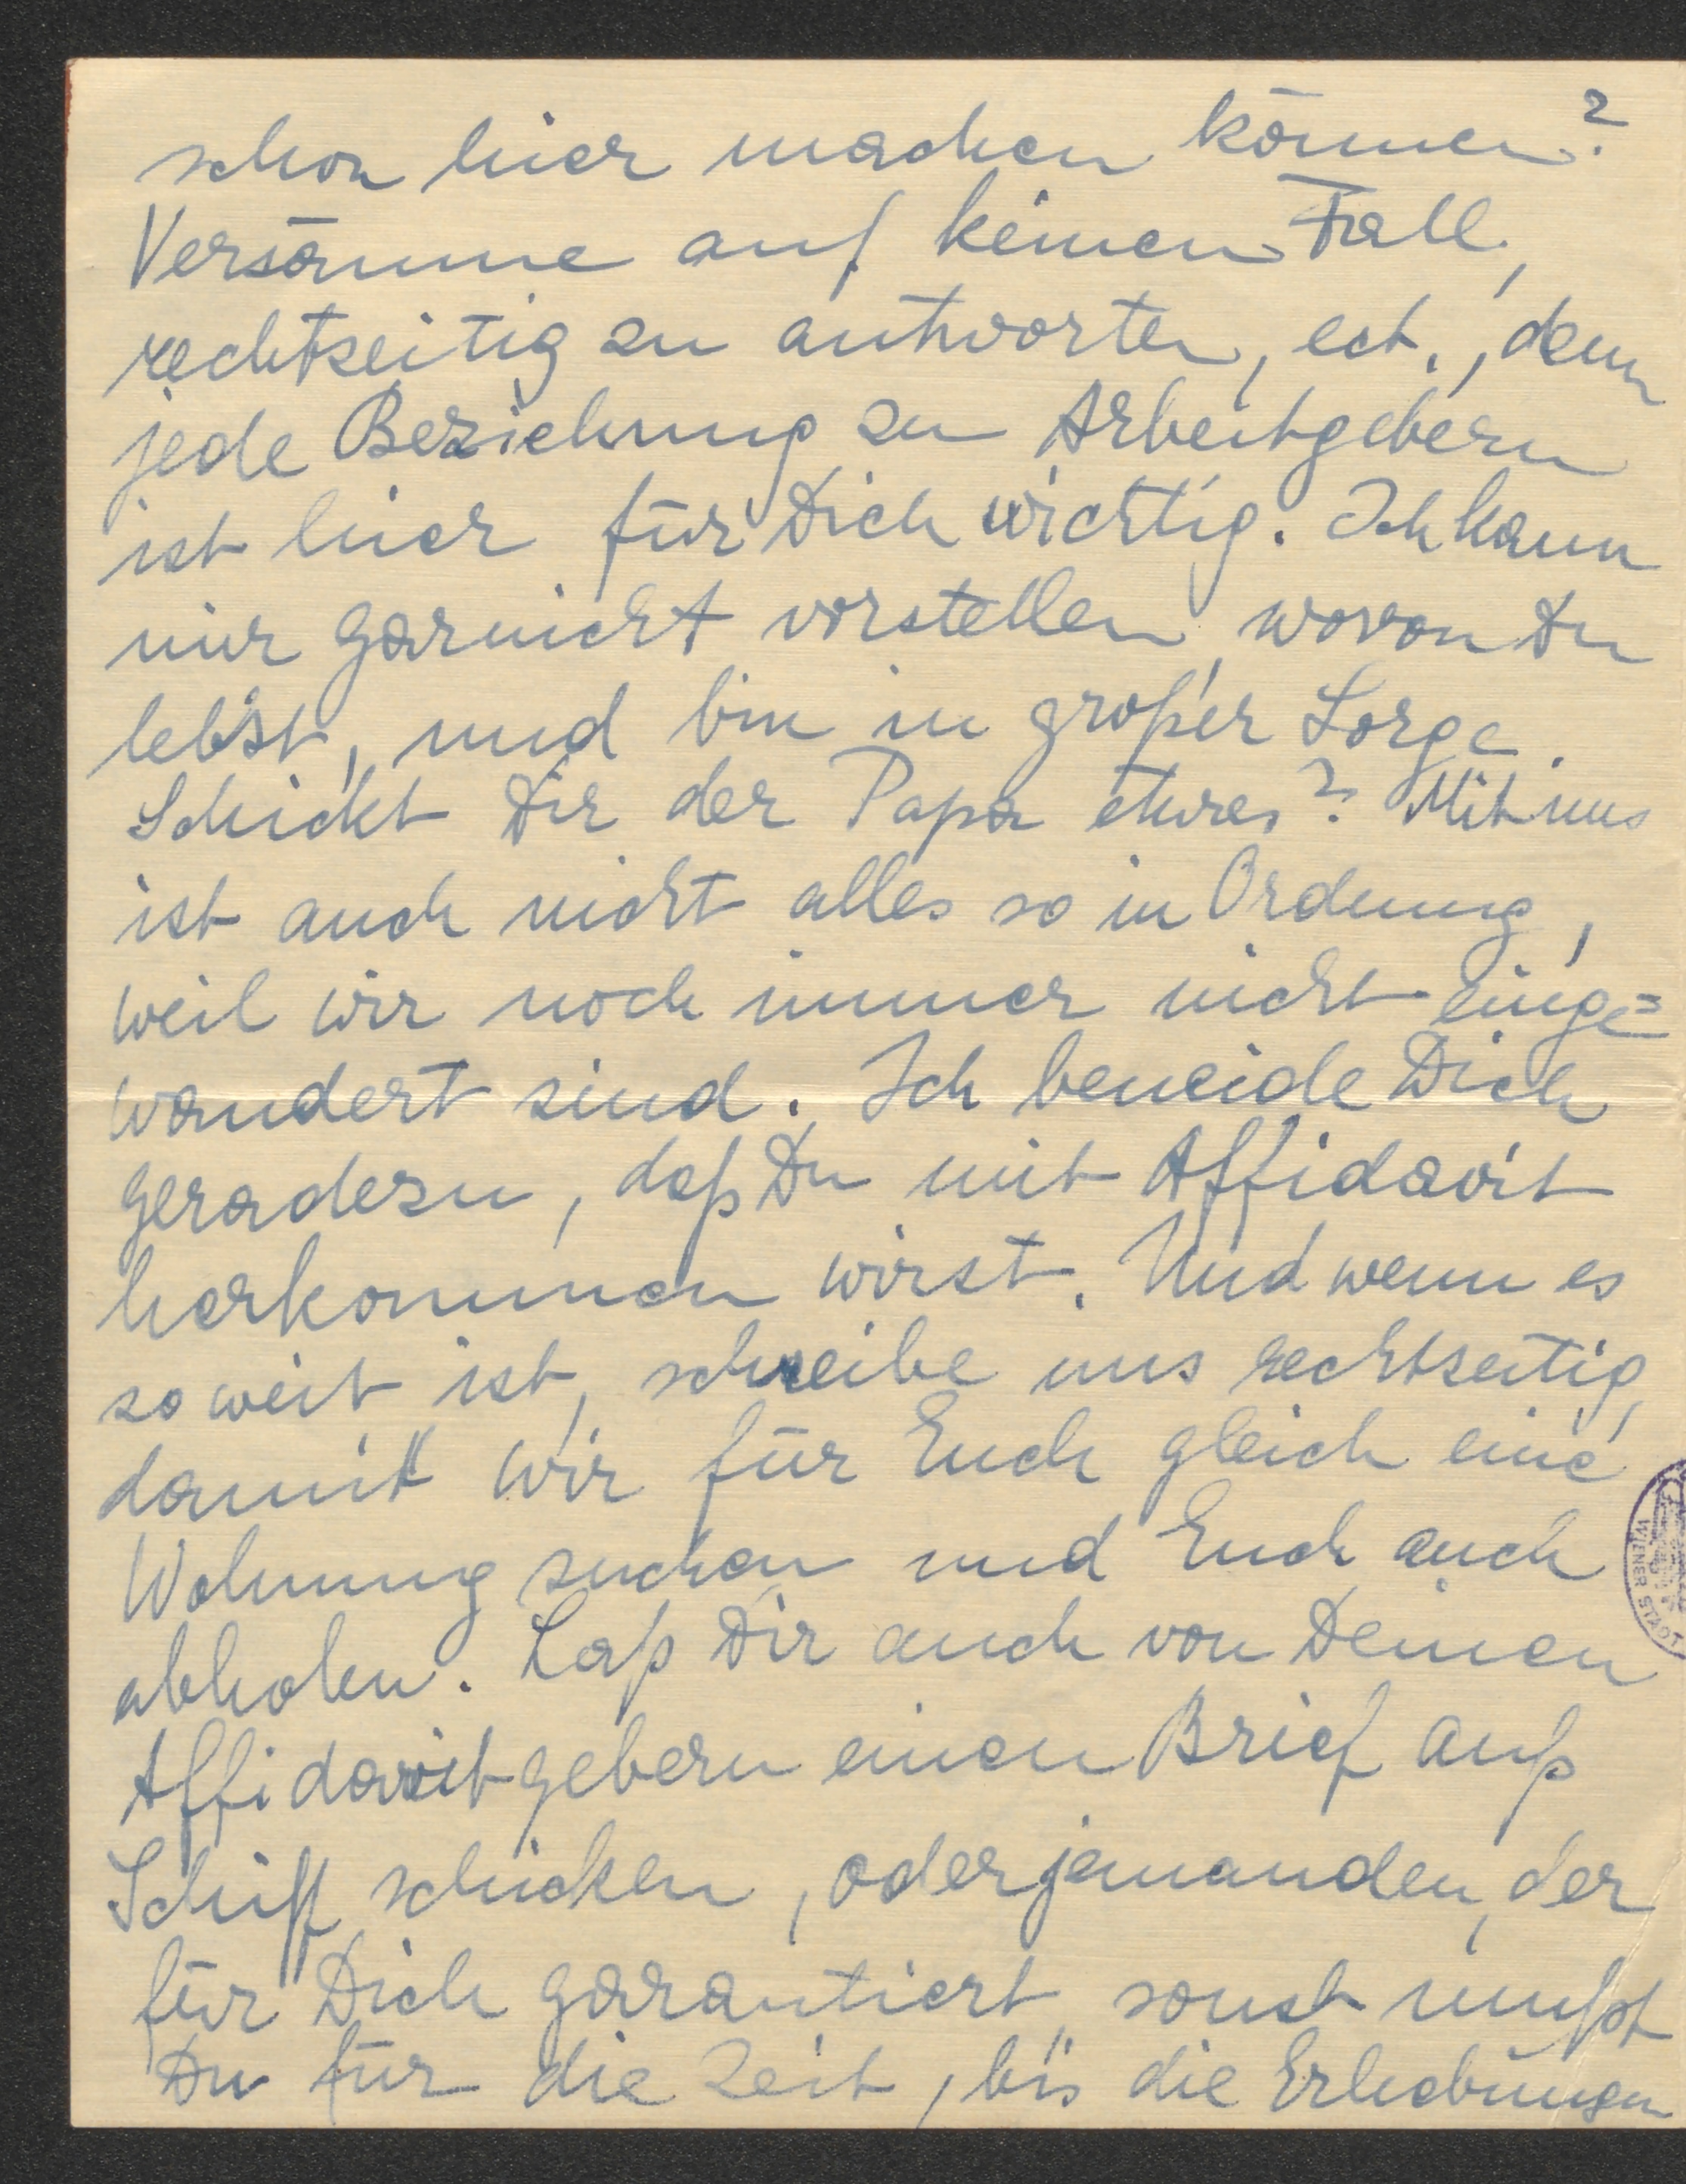 schon hier machen können?
Versäume auf keinen Fall,
rechtzeitig zu antworten, ect., denn
jede Beziehung zu Arbeitgebern
ist hier für Dich wichtig. Ich kann
mir garnicht vorstellen wovon Du
lebst, und bin in großer Sorge.
Schickt Dir der Papa etwas? Mit uns
ist auch nicht alles so in Ordnung,
weil wir noch immer nicht einge=
wandert sind. Ich beneide Dich
geradezu, daß Du mit Affidavit
herkommen wirst. Und wenn es
so weit ist, schreibe uns rechtzeitig,
damit wir für Euch gleich eine
Wohnung suchen und Euch auch
abholen. Laß Dir auch von Deinen
Affidavitgebern einen Brief aufs
Schiff schicken, oder jemanden, der
für Dich garantiert, sonst mußt
Du für die Zeit, bis die Erhebungen
WIENER STADT